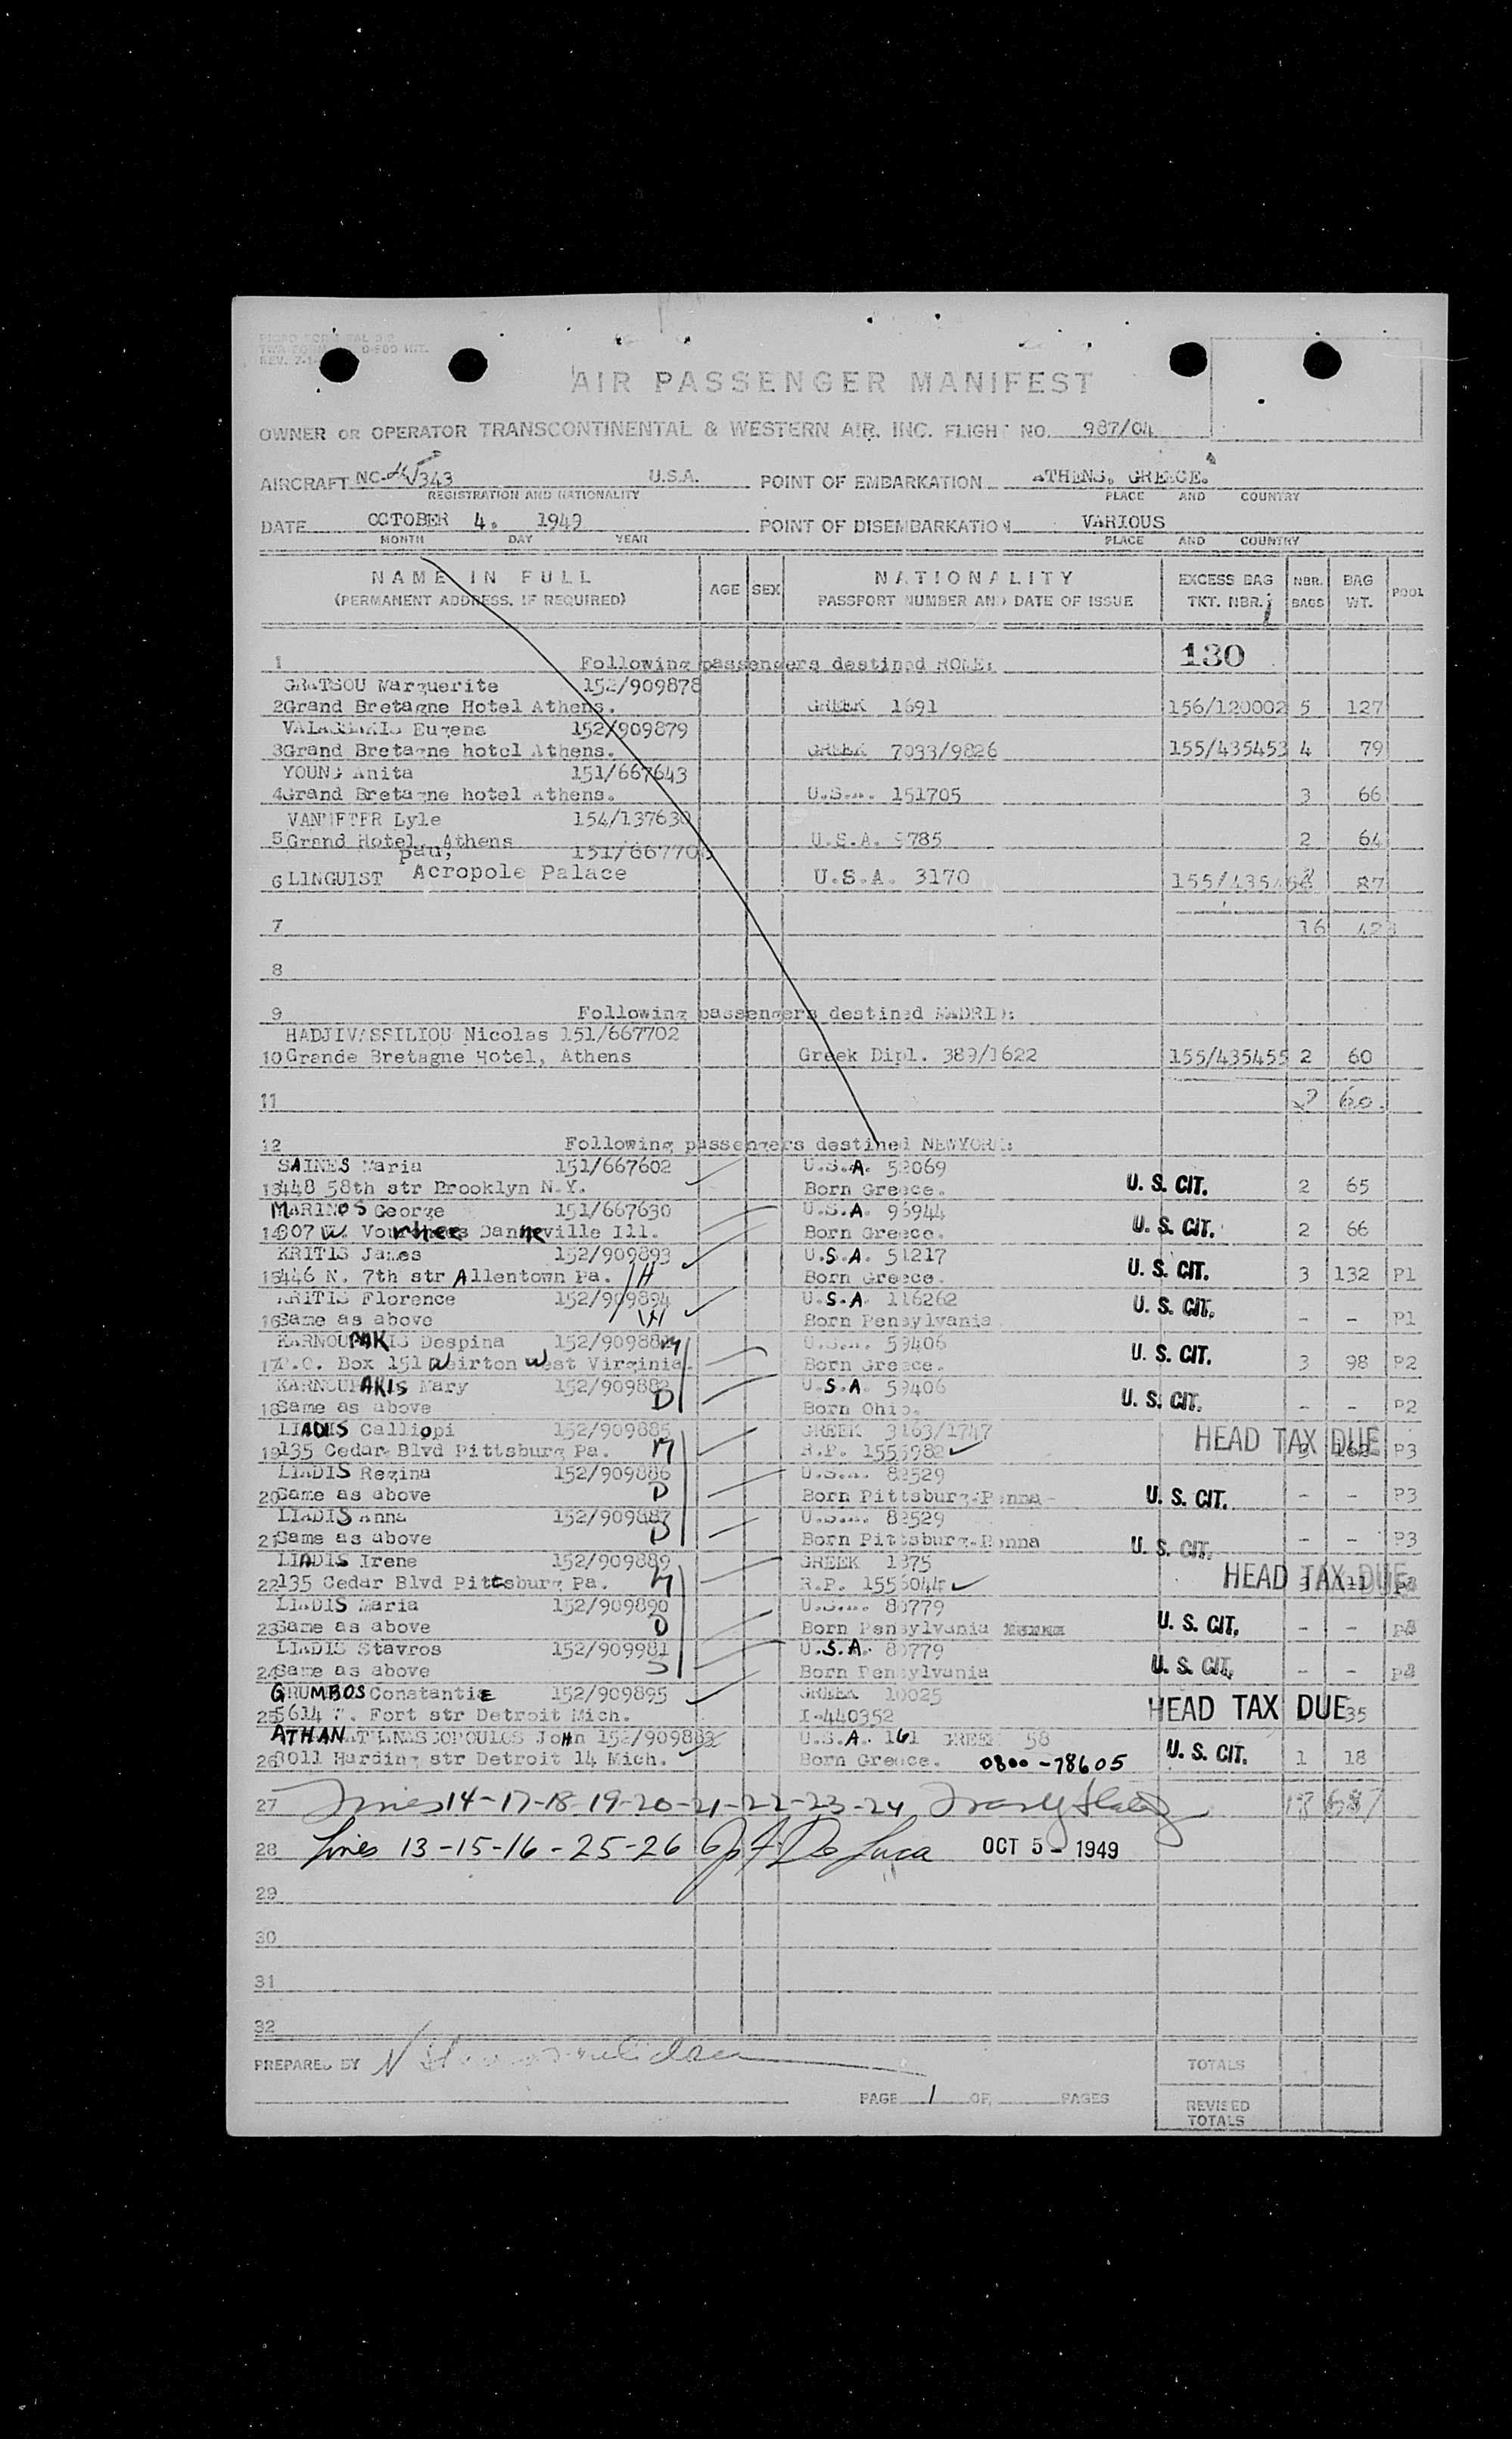 AIR PASSENGER MANIFEST
OWNER OR OPERATOR TRANSCONTINENTAL & WESTERN AIR, INC. FLIGHT NO. 987/04
AIRCRAFT NC- 343 U.S.A. POINT OF EMBARKATION ATHENS, GREECE.
REGISTRATION AND NATIONALITY PLACE AND COUNTRY
DATE OCTOBER 4. 1949 POINT OF DISEMBARKATION VARIOUS
MONTH DAY YEAR PLACE AND COUNTRY
NAME IN FULL AGE SEX NATIONALITY EXCESS BAG NBR. BAG POOL
(PERMANENT ADDRESS, IF REQUIRED) PASSPORT NUMBER AND DATE OF ISSUE TKT. NBR. BAGS WT.
130
1 Following passengers destined ROME:
GRATSOU Marguerite 152/909878
2 Grand Bretagne Hotel Athens. GREEK 1691 156/120002 5 127
Eugene 152/909879
3 Grand Bretagne hotel Athens. GREEK 7033/9826 155/435453 4 79
YOUNG Anita 151/667643
4 Grand Bretagne hotel Athens. U.S.A. 151705 3 66
VANMETER Lyle 154/137630
5 Grand Hotel, Athens U.S.A. 9785 2 64
Paul,
6 LINGUIST Acropole Palace U.S.A. 3170 87
7 16
8
9 Following passengers destined MADRID:
HADJIVASSILIOU Nicolas 151/667702
10 Grande Bretagne Hotel, Athens Greek Dipl. 389/1622 155/435455 2 60
11 2 60.
12 Following passengers destined NEWYORK:
SAINES Maria 151/667602 U.S.A. 52069
13 448 58th str Brooklyn N.Y. Born Greece. U. S. CIT. 2 65
MARINOS George 151/667630 U.S.A. 96944
14 307 W. Danneville Ill. Born Greece. U. S. CIT. 2 66
KRITIS James 152/909893 U.S.A. 51217
15 446 N. 7th str Allentown Pa. H Born Greece. U. S. CIT. 3 132 P1
KRITIS Florence 152/909894 U.S.A. 116262
16 Same as above W Born Pensylvania U. S. CIT. - - P1
KARNOUPAKIS Despina M U.S.A. 59406
17 P.O. Box 151 Weirton West Virginia. Born Greece. U. S. CIT. 3 98 P2
KARNOUPAKIS Mary 152/909883 U.S.A. 59406
18 Same as above D Born Ohio. U. S. CIT. - - P2
LIADIS Calliopi 152/909885 GREEK 3163/1747
19 135 Cedar Blvd Pittsburg Pa. M R.P. 1555982 HEAD TAX DUE 3 162 P3
LIADIS Regina 152/909886 U.S.A. 82529
20 Same as above D Born Pittsburg-Penna- U. S. CIT. - - P3
LIADIS Anna 152/909887 U.S.A. 82529
21 Same as above D Born Pittsburg-Penna U. S. CIT. - - P3
LIADIS Irene 152/909889 GREEK 1375
22 135 Cedar Blvd Pittsburg Pa. M R.P. 1556044 HEAD TAX DUE
LIADIS Maria 152/909890 U.S.A. 80779
23 Same as above D Born Pensylvania U. S. CIT. - -
LIADIS Stavros 152/909981 U.S.A. 80779
24 Same as above S Born Pensylvania U. S. CIT. - -
GRUMBOS Constantie 152/909895 GREEK 10025
25 5614 W. Fort str Detroit Mich. I-440352 HEAD TAX DUE 35
John U.S.A. 161 GREEK 58
26 8011 Harding str Detroit 14 Mich. Born Greece. 0800-78605 U. S. CIT. 1 18
27 Lines 14-17-18-19-20-21-22-23-24 18 687
28 Lines 13-15-16-25-26 De Luca OCT 5 - 1949
29
30
31
32
PREPARED BY TOTALS
PAGE 1 OF PAGES REVISED
TOTALS